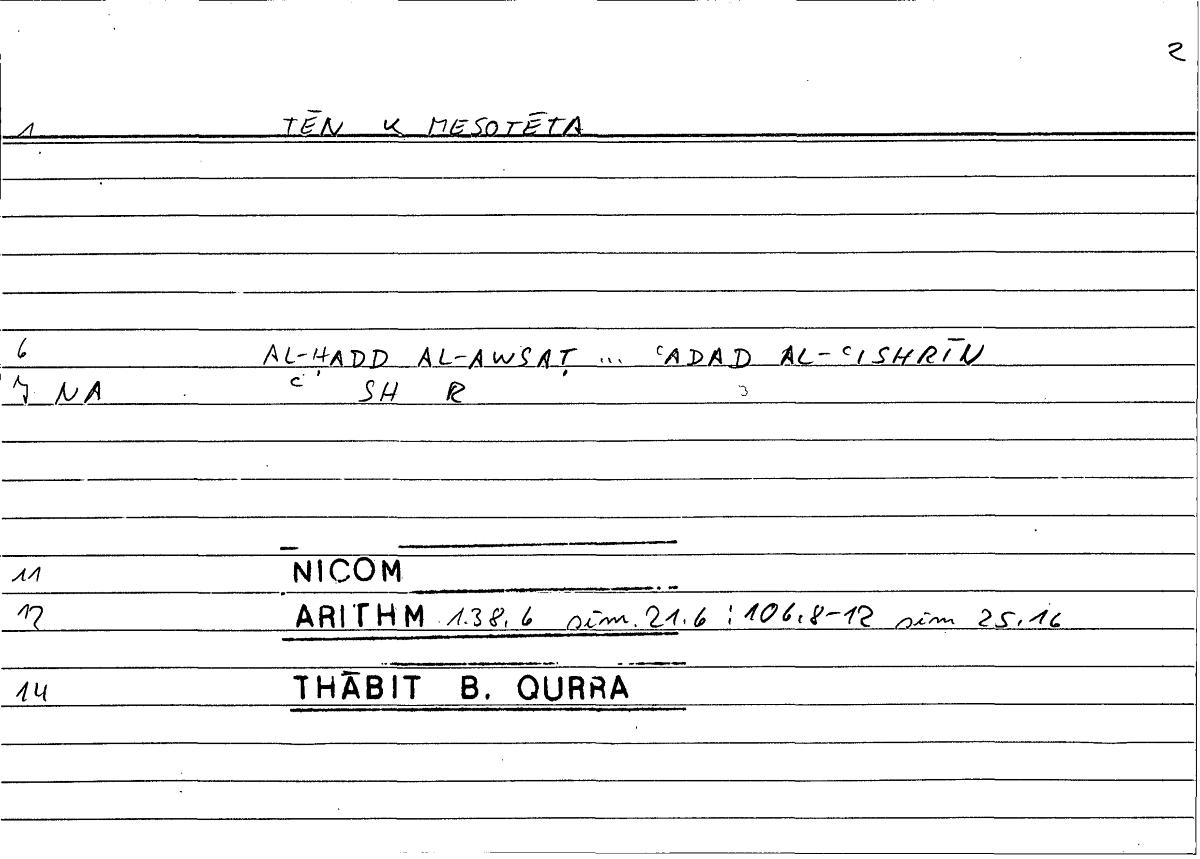 2
1 TĒN K MESOTĒTA
6 AL-ḤADD AL-AWSAṬ ... ʿADAD AL-ʿISHRĪN
7 NA ʿ SH R 3
11 NICOM
12 ARITHM 1.38,6 sim. 21.6 ; 106,8-12 sim 25,16
14 THĀBIT B. QURRA